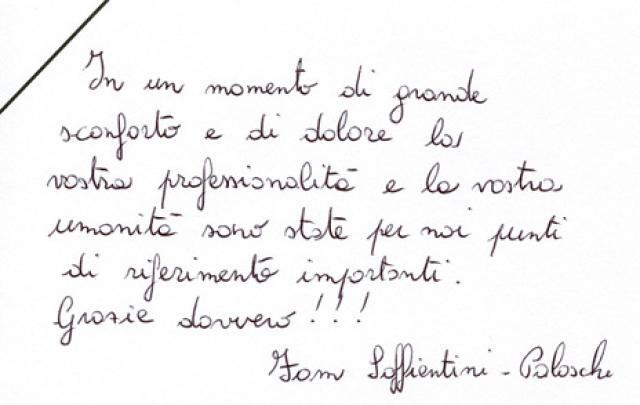 In un momento di grande
sconforto e di dolore la
vostra professionalità e la vostra
umanità sono state per noi punti
di riferimento importanti.
Grazie davvero!!!
Fam Soffientini - Polosche